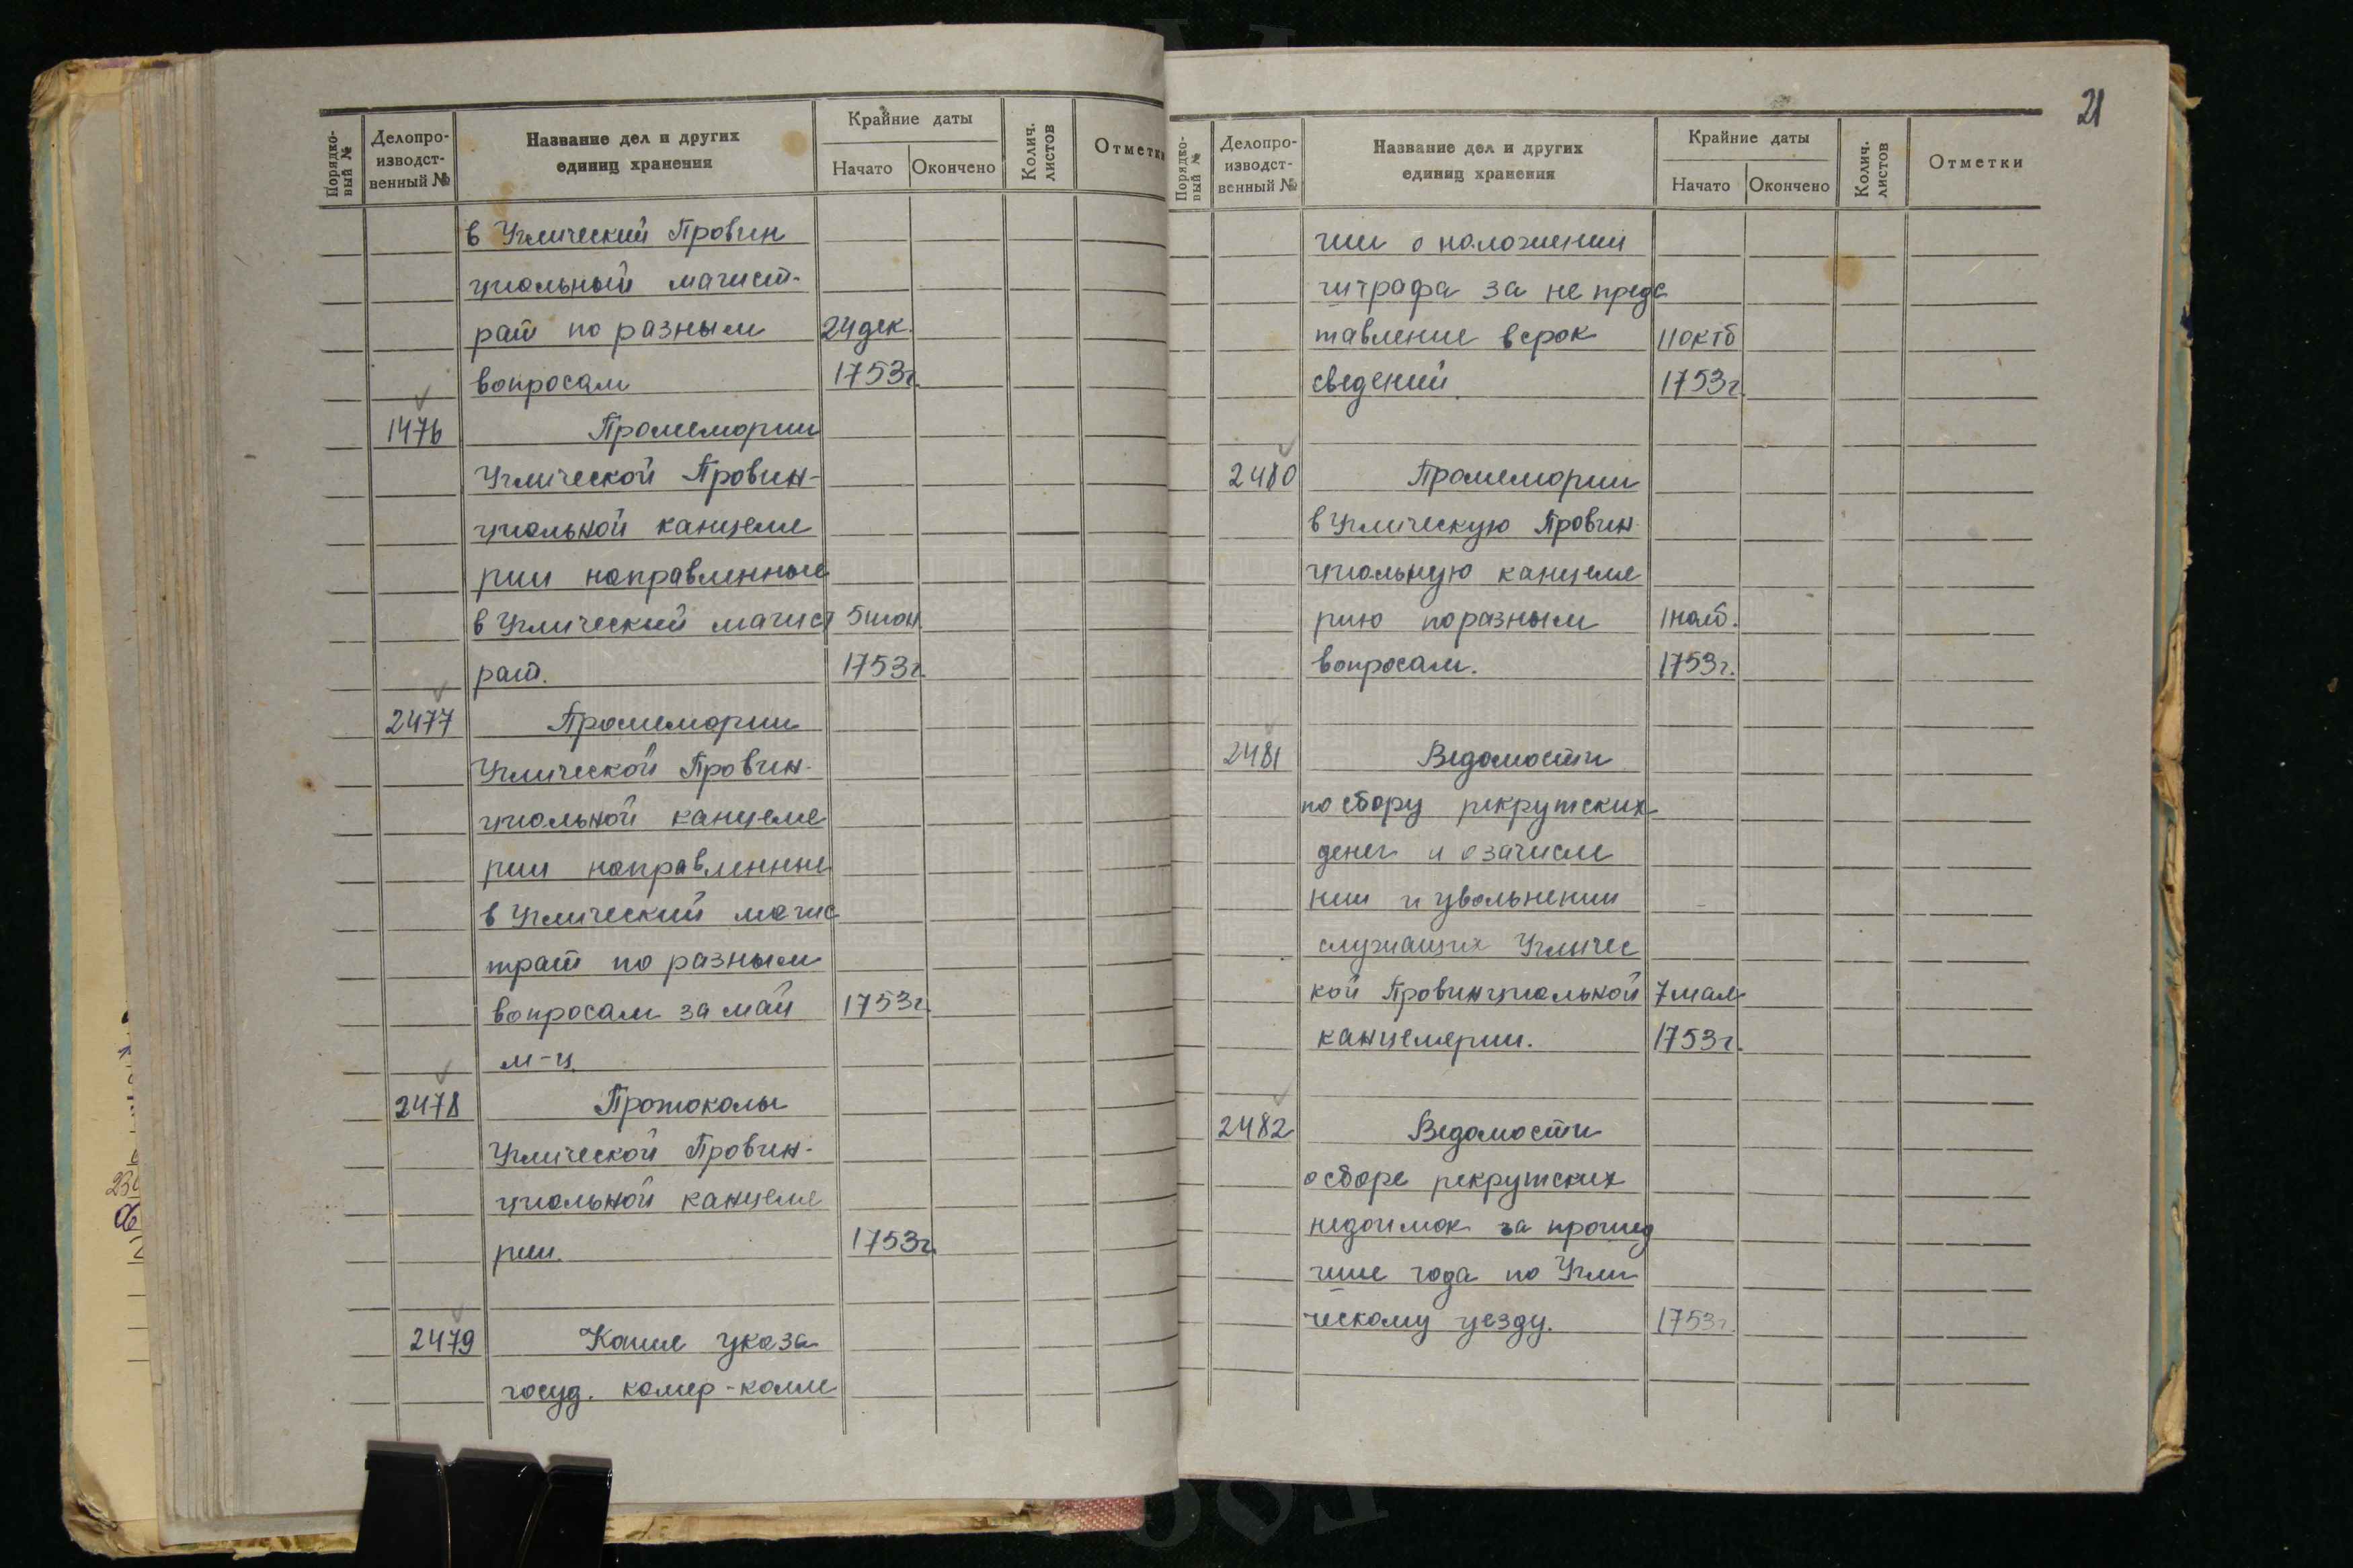 Порядко-
вый №
Делопро-
изводст-
венный №
Название дел и других
единиц хранения
Крайние даты
Начато
Окончено
Колич.
листов
Отметки
в Угличский Провин
циальный магист-
рат по разным 24 дек.
вопросам 1753г.
1476 Промемории
Угличской Провин-
циальной канцеля
рии направленные
в Угличский магист 5 июн
рат. 1753г.
2477 Промемории
Угличской Провин-
циальной канцеля
рии направленные
в Угличский магис
трат по разным
вопросам за май 1753г.
м-ц
2478 Протоколы
Угличской Провин-
циальной канцеля
рии. 1753г.
2479 Копия указа
госуд. камер-колле
21
Порядко-
вый №
Делопро-
изводст-
венный №
Название дел и других
единиц хранения
Крайние даты
Начато
Окончено
Колич.
листов
Отметки
гии о наложении
штрафа за не предс
тавление в срок 11 октб
сведений. 1753г.
2480 Промемории
в Угличскую Провин
циальную канцеля
рию по разным 1 нояб.
вопросам. 1753г.
2481 Ведомости
по сбору рекрутских
денег и о зачисле
нии и увольнении
служащих Угличс
кой Провинциальной 7 мая
канцелярии. 1753г.
2482 Ведомости
о сборе рекрутских
недоимок за прошед
шие года по Угли
ческому уезду. 1753г.